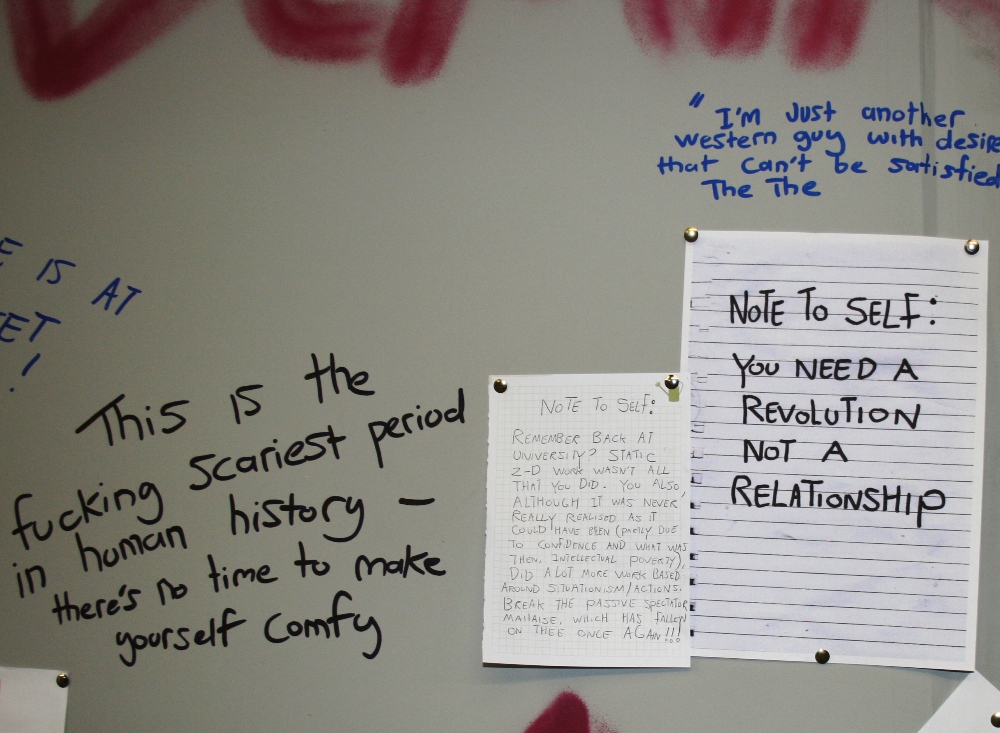 " I'm Just another
western guy with desire
that can't be satisfied
The The
E IS AT
ET
!
This is the
fucking scariest period
in human history —
there's no time to make
yourself comfy
NOTE TO SELF:
REMEMBER BACK AT
UNIVERSITY? STATIC
2-D WORK WASN'T ALL
THAT YOU DID. YOU ALSO,
ALTHOUGH IT WAS NEVER
REALLY REALISED AS IT
COULD HAVE BEEN (PARTLY DUE
TO CONFIDENCE AND WHAT WAS
THEN, INTELLECTUAL POVERTY),
DID A LOT MORE WORK BASED
AROUND SITUATIONISM/ACTIONS.
BREAK THE PASSIVE SPECTATOR
MALIASE, WHICH HAS FALLEN
ON THEE ONCE AGAIN!!!
NOTE TO SELF:
YOU NEED A
REVOLUTION
NOT A
RELATIONSHIP